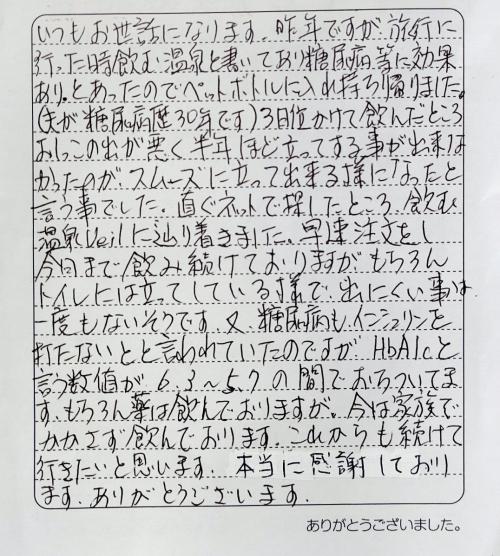 いつもお世話になります。昨年ですが旅行に
行った時飲む温泉と書いており糖尿病等に効果
あり。とあったのでペットボトルに入れ持ち帰りました。
(夫が糖尿病歴30年です)3日位かけて飲んだところ
おしっこの出が悪く半年ほど立ってする事が出来な
かったのが、スムーズに立って出来る様になったと
言う事でした。直ぐネットで探したところ、飲む
温泉Veilに辿り着きました。早速注文をし
今日まで飲み続けておりますがもちろん
トイレには立ってしている様で出にくい事は
一度もないそうです。又、糖尿病もインシュリンを
打たないとと言われていたのですが HbA1cと
言う数値が 6.3~5.7の間でおちついてま
す。もちろん薬は飲んでおりますが。今は家族で
かかさず飲んでおります。これからも続けて
行きたいと思います。 本当に感謝しており
ます。ありがとうございます。
ありがとうございました。